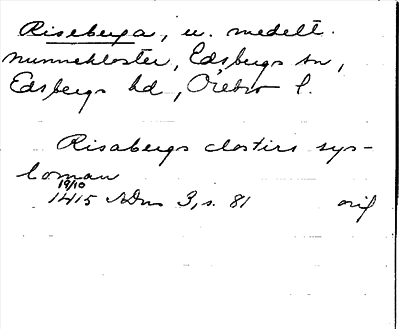 Riseberga, u. medelt.
nunnekloster, Edsbergs sn,
Edsbergs hd, Örebro l.
Risabergs closters sys-
loman
19/10
1415 SDns 3, s. 81 orig